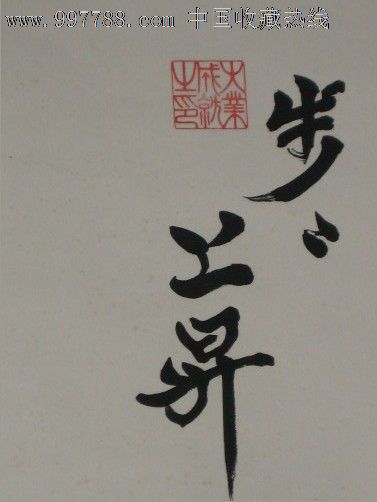 www.997788.com 中国收藏热线
步〻
上昇
大業
成就
之印